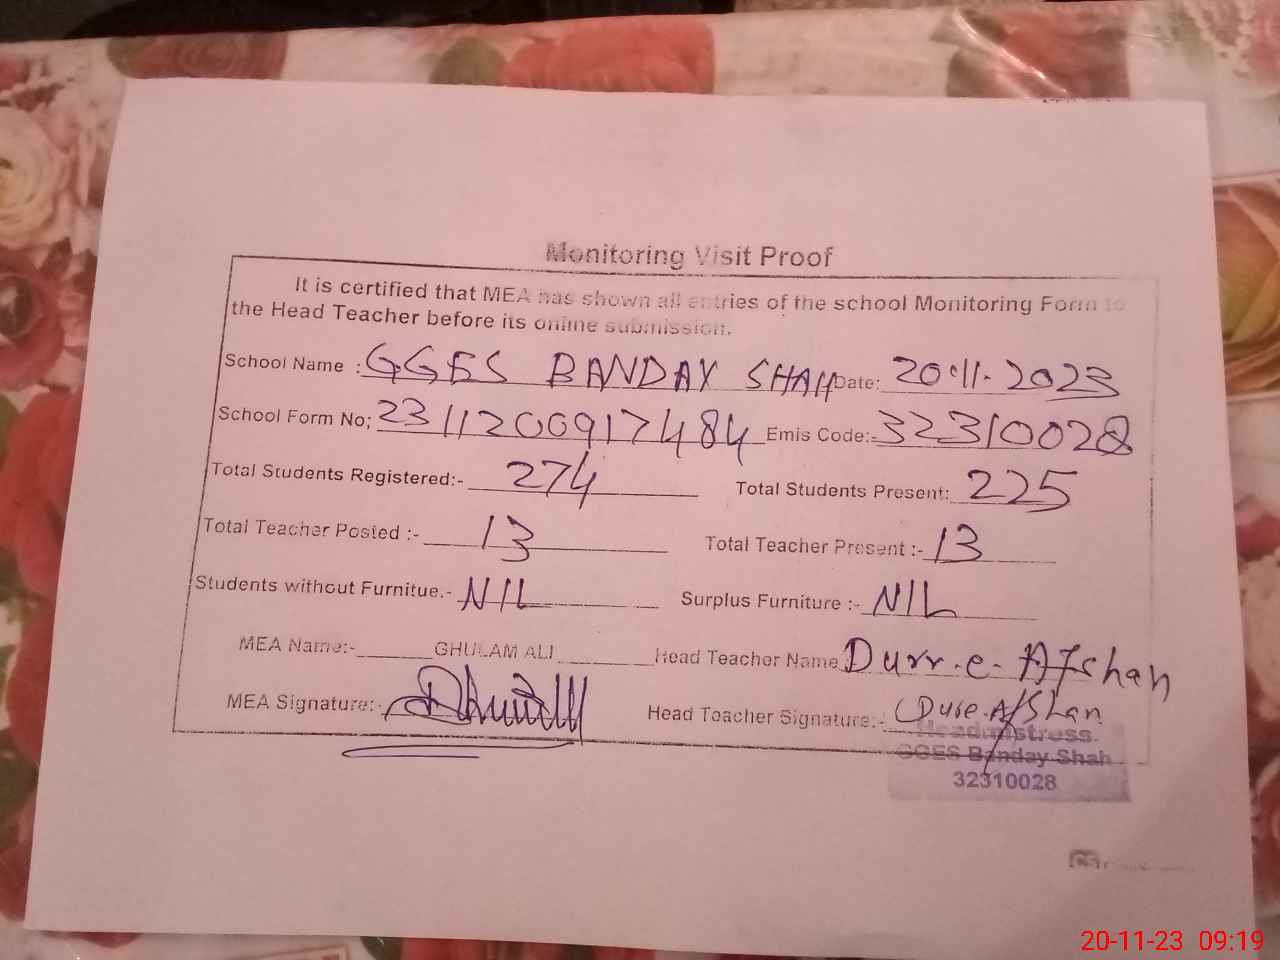 Monitoring Visit Proof
It is certified that MEA has shown all entries of the school Monitoring Form to
the Head Teacher before its online submission.
School Name :GGES BANDAY SHAH Date: 20.11.2023
School Form No; 2311200917484 Emis Code:- 32310028
Total Students Registered:- 274 Total Students Present: 225
Total Teacher Posted :- 13 Total Teacher Present :- 13
Students without Furnitue.- NIL Surplus Furniture :- NIL
MEA Name:- GHULAM ALI Head Teacher Name Durr.e.Afshan
MEA Signature:- Head Teacher Signature:- Dure.Afshan
Headmistress
GGES Banday Shah
32310028
CS
20-11-23 09:19